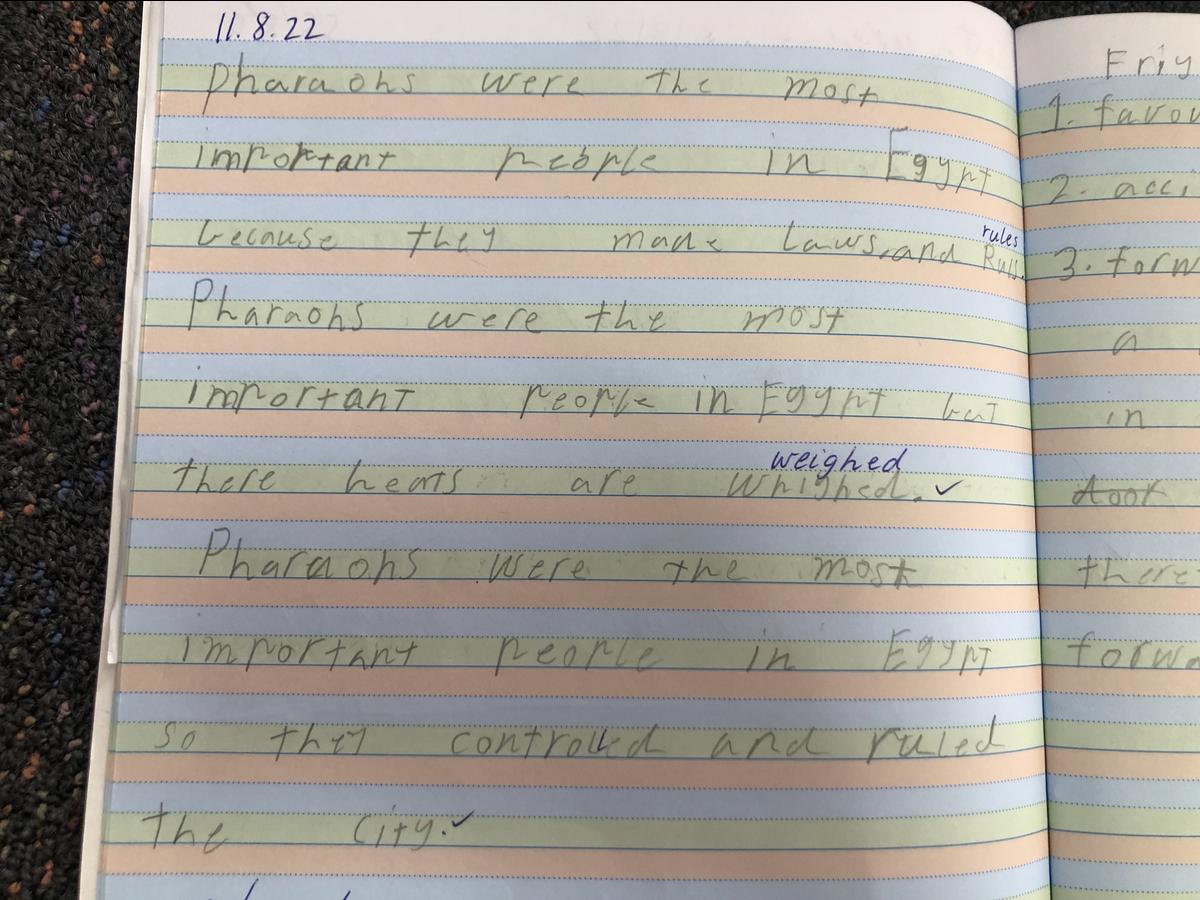 11.8.22
Pharaohs were the most
important people in Egypt
because they made laws and
rules
Pharaohs were the most
important people in Egypt but
weighed
there hears are whighed. ✓
Pharaohs were the most
important people in Egypt
so they controlled and ruled
the city. ✓
Friy
1. favou
2. acci
3. forw
a
in
door
there
forwa